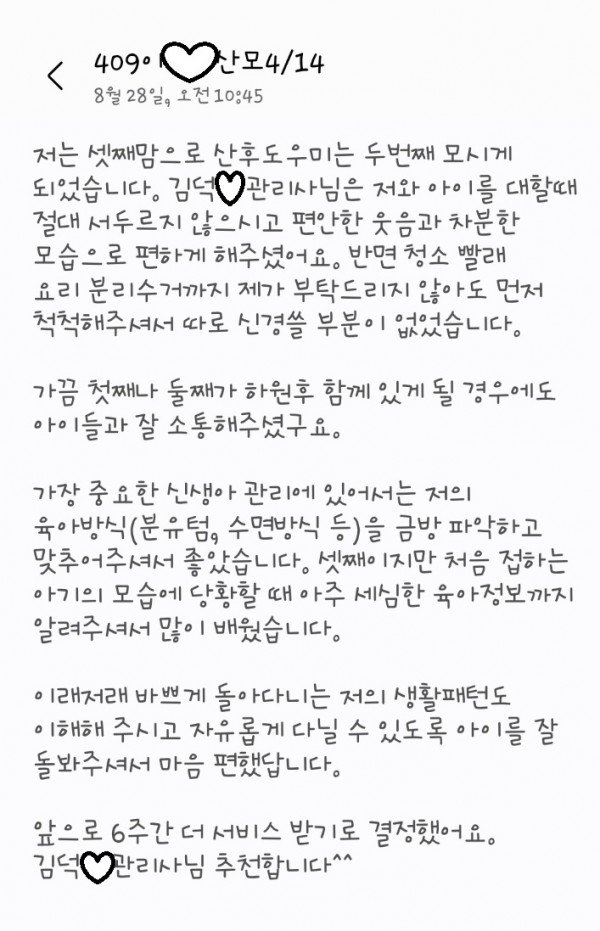 409이♡산모4/14
8월 28일, 오전 10:45
저는 셋째맘으로 산후도우미는 두번째 모시게
되었습니다. 김덕♡관리사님은 저와 아이를 대할때
절대 서두르지 않으시고 편안한 웃음과 차분한
모습으로 편하게 해주셨어요. 반면 청소 빨래
요리 분리수거까지 제가 부탁드리지 않아도 먼저
척척해주셔서 따로 신경쓸 부분이 없었습니다.
가끔 첫째나 둘째가 하원후 함께 있게 될 경우에도
아이들과 잘 소통해주셨구요.
가장 중요한 신생아 관리에 있어서는 저의
육아방식(분유텀, 수면방식 등)을 금방 파악하고
맞추어주셔서 좋았습니다. 셋째이지만 처음 접하는
아기의 모습에 당황할 때 아주 세심한 육아정보까지
알려주셔서 많이 배웠습니다.
이래저래 바쁘게 돌아다니는 저의 생활패턴도
이해해 주시고 자유롭게 다닐 수 있도록 아이를 잘
돌봐주셔서 마음 편했답니다.
앞으로 6주간 더 서비스 받기로 결정했어요.
김덕♡관리사님 추천합니다^^